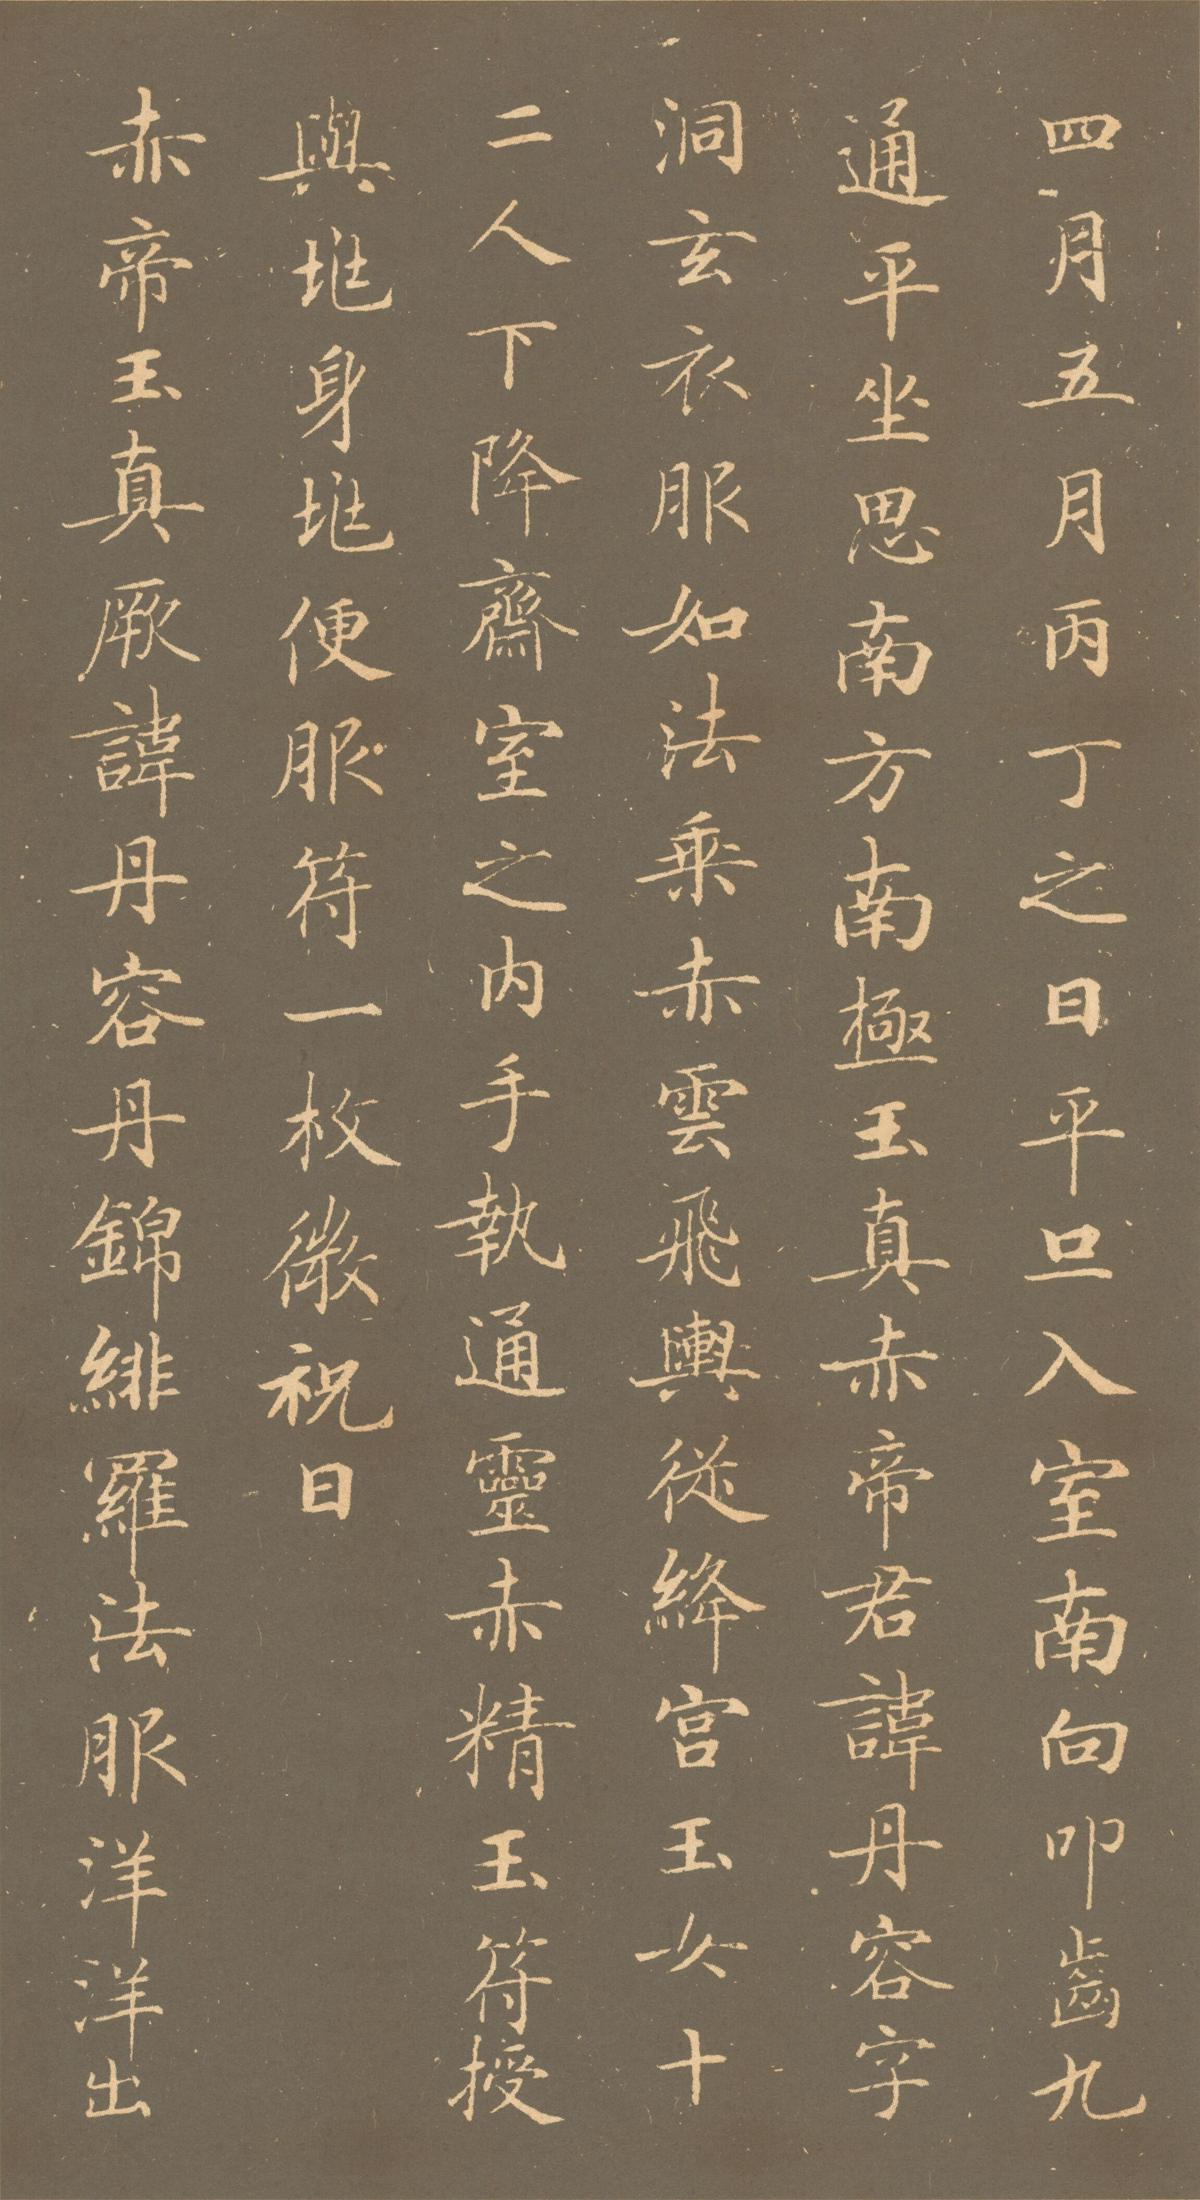 四月五月丙丁之日平旦入室南向叩齒九
通平坐思南方南極玉真赤帝君諱丹容字
洞玄衣服如法乗赤雲飛輿從絳宮玉女十
二人下降齋室之内手執通靈赤精玉符授
與垗身垗便服符一枚微祝曰
赤帝玉真厥諱丹容丹錦緋羅法服洋洋出